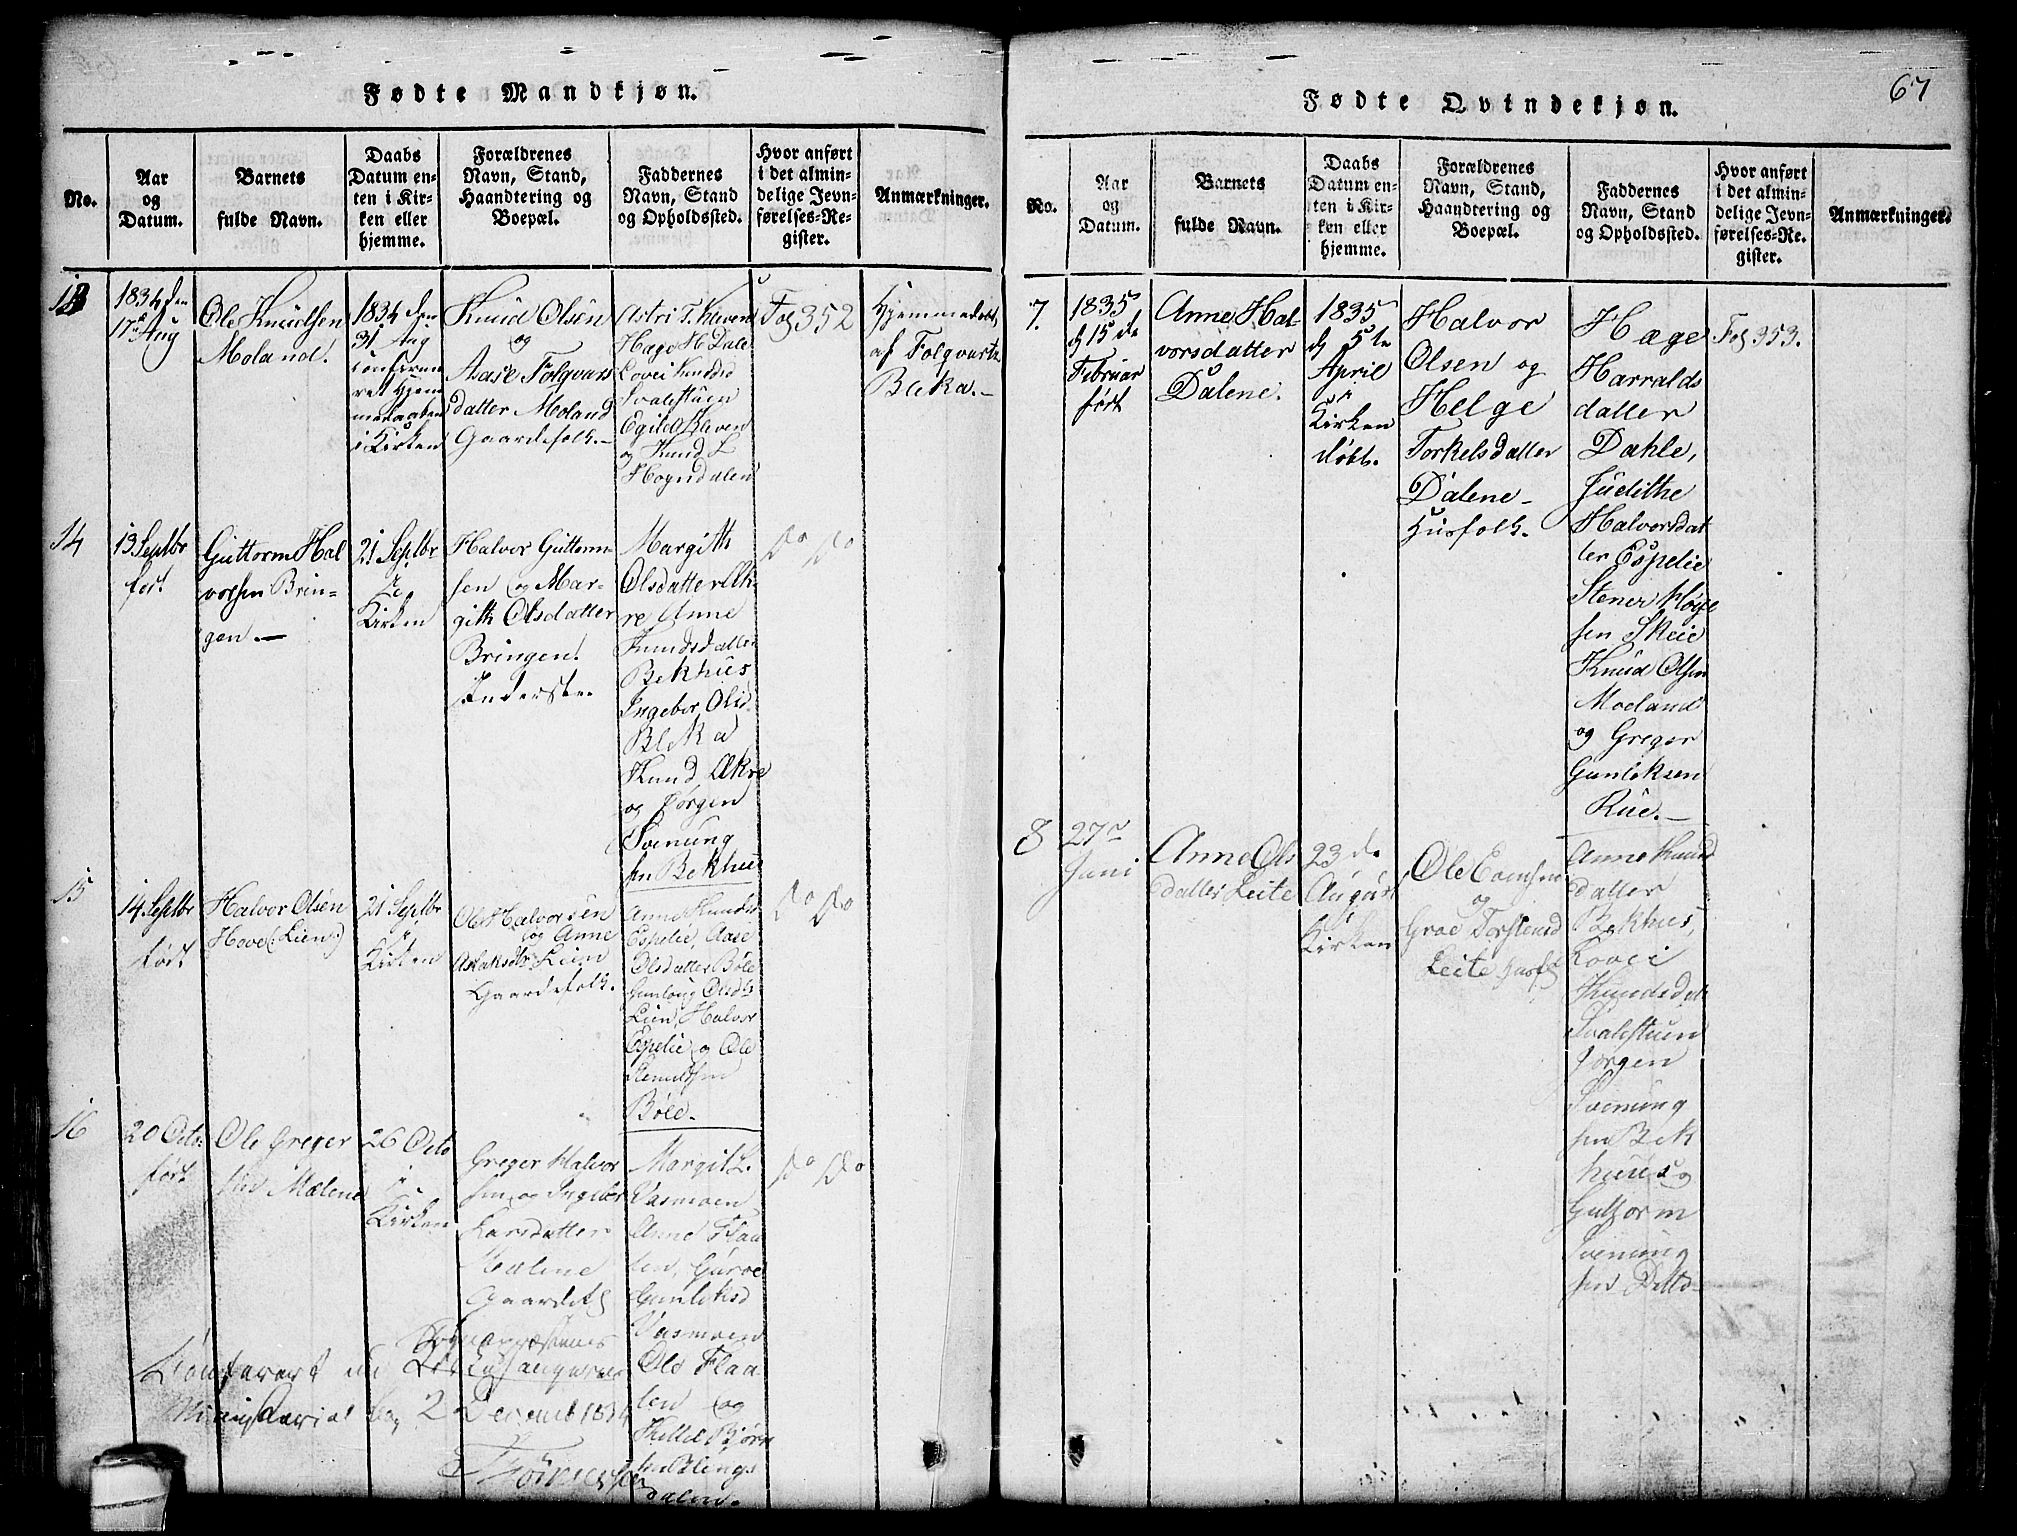 Fødte Mandkjøn.
No.
Aar
og
Datum.
Barnets
fulde Navn.
Daabs
Datum en-
ten i Kir-
ken eller
hjemme.
Forældrenes
Navn, Stand,
Haandtering og
Boepæl.
Faddernes
Navn, Stand
og Opholdssted.
Hvor anført
i det almin-
delige Jevn-
førelses-Re-
gister.
Anmærkninger.
13
1834 den
17de Aug
Ole Knudsen
Moland.
1834 den
31 Aug
ret Hjem
i Kirken
Knud Olsen
og
Aase Folqvars
datter Moland
Gaardefolk.
Astri T. Kleven
Hage H Dale
Lovei Knudsd
Svalestuen
Egild Kleven
og Knud L
Hogndalen
Fol 352
Hjemmedøbt
af Folqvart
Bleka.
14
13 Septbr
fød.
Guttorm Hal
vorsen Brin-
gen.
21 Septbr
i
Kirken
Halvor Guttorm-
sen og Mar-
gith Olsdatter
Bringen.
Inderster
Margith
Olsdatter Æk-
re Anne
Knudsdatter
Bekhus
Ingebor Olsd.
Bleka
Knud Ækre
og Jørgen
Svenung
sen Bekhus
Do Do
15
14 Septbr
født
Halvor Olsen
Hove (: Lien:)
21 Septbr
i
Kirken
Ole Halvorsen
og Anne
Aslaksdtr Lien
Gaardefolk.
Anne Knudsd
Espelie, Aase
Olsdatter Bøle
Gunloug Olsdtr
Lien, Halvor
Espelie og Ole
Bøle.
Do Do
16
20 Octo.
født
Ole Greger
sen Mælene
26 Octo
i
Kirken
Greger Halvor
sen og Ingebor
Larsdatter
Mælene
Gaardef
Margit L.
Vasmoen
Anne Flaa
ten, Guroe
Gunleksd
Vasmoen
Ole Flaa
ten og
Kittel Bjørn
sen Blengs
dalen.
Do Do
Conferert
Ministerial bog 2 Decemb 1834
Fødte Qvindekjøn.
67
No.
Aar
og
Datum.
Barnets
fulde Navn.
Daabs
Datum en-
ten i Kir-
ken eller
hjemme.
Forældrenes
Navn, Stand,
Haandtering og
Boepæl.
Faddernes
Navn, Stand
og Opholdssted.
Hvor anført
i det almin-
delige Jevn-
førelses-Re-
gister.
Anmærkninger.
7.
1835
d 15 de
Februar
født
Anne Hal-
vorsdatter
Dalene.
1835
d 5te
April
i
Kirken
døbt.
Halvor
Olsen og
Helge
Torkelsdatter
Dalene
Husfolk.
Hæge
Harralds
datter
Dahle,
Judithe
Halvorsdat
ter Espelie
Stener Høge
sen Skeie
Knud Olsen
Moeland
og Greger
Gunleksen
Rue.
Fol 353.
8
27de
Juni
Anne Ols
datter Leite
23 de
August
i
Kirken
Ole Evensen
og
Groe Torstensd
Leite Husf
Anne Knud
datter
Bekhus,
Lovei
Knudsdat
Svalestuen
Jørgen
Svenung
sen Bek
huus og
Guttorm
Svenung
sen Ditto